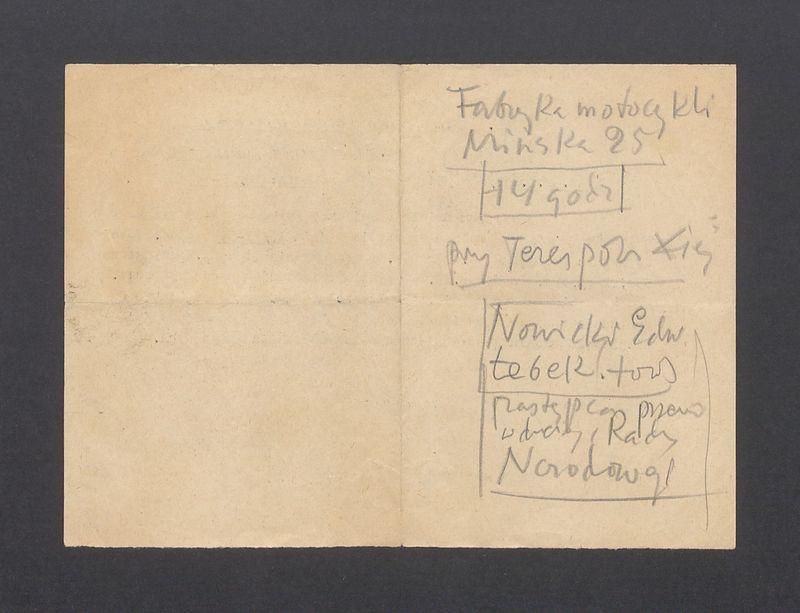 Fabryka motocykli
Mińska 25
14 godz
przy Terespolskiej
Nowicki Edw.
tow
zastępca przewo
dniczą. Rady
Narodowej